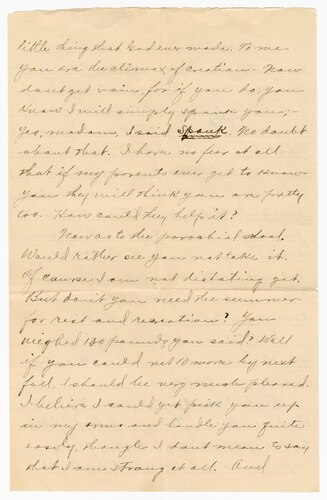 little thing that God ever made. To me
you are the climax of creation. Now
dont get vain, for if you do you
know I will simply spank you,-
Yes, madam, I said spank. No doubt
about that. I have no fear at all
that if my parents ever get to know
you they will think you are pretty
too. How could they help it?
Now as to the parochial school.
Would rather see you not take it.
Of course I am not distating yet.
But don't you need the summer
for rest and recreation? You
weighed 130 pounds, you said? Well
if you could net 10 more by next
fall I should be very much pleased.
I believe I could yet pick you up
in my arms and handle you quite
easily, though I don't mean to say
that I am strong at all. And